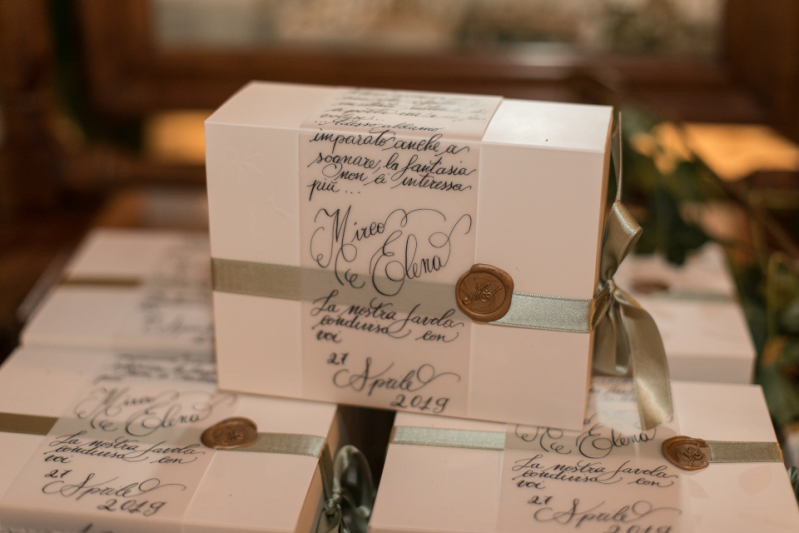 Adesso abbiamo
imparato anche a
sognare, la fantasia
non ci interessa
più...
Mirco
e Elena
La nostra favola
condivisa con
voi
27
Aprile
2019
Mirco
e Elena
La nostra favola
condivisa con
voi
27
Aprile
2019
e Elena
La nostra favola
condivisa con
voi
27
Aprile
2019